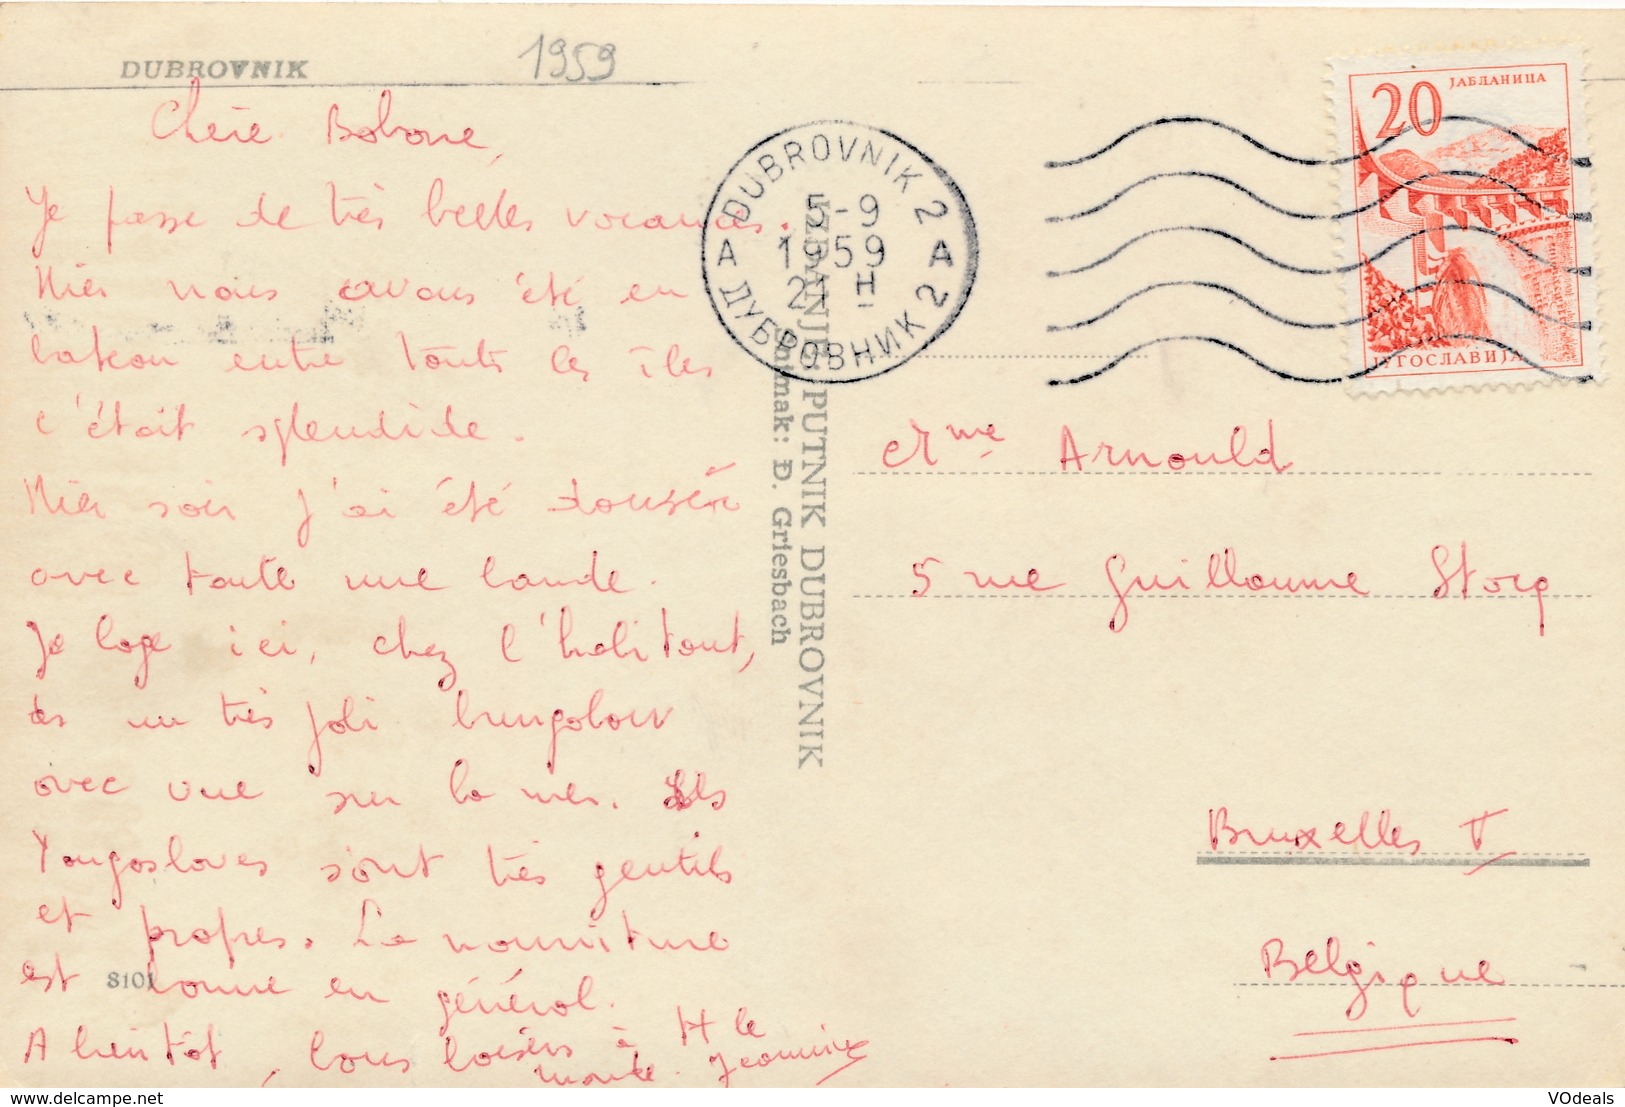 DUBROVNIK
1959
Chère Bobonne,
Je passe de très belles vacances.
Hier nous avons été en
bateau entre toutes les îles
c'était splendide.
Hier soir j'ai été danser
avec toute une bande.
Je loge ici, chez l'habitant,
ds un très joli bungalow
avec vue sur la mer. Les
Yougoslaves sont très gentils
et propres. La nourriture
est bonne en général.
A bientôt, bons baisers à tt le
monde. Jeannine
8101
IZDANJE: PUTNIK DUBROVNIK
Snimak: Đ. Griesbach
DUBROVNIK 2
A 5-9 A
1959
21 H
ДУБРОВНИК 2
20 ЈАБЛАНИЦА
ЈУГОСЛАВИЈА
Mme Arnould
5 rue Guillaume Stocq
Bruxelles V
Belgique
delcampe.net
VOdeals